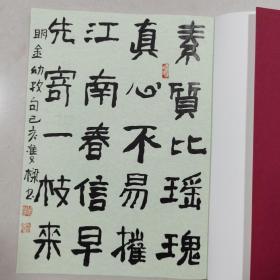 素質比瑶瑰
真心不易摧
江南春信早
先寄一枝来
明金幼孜句己亥